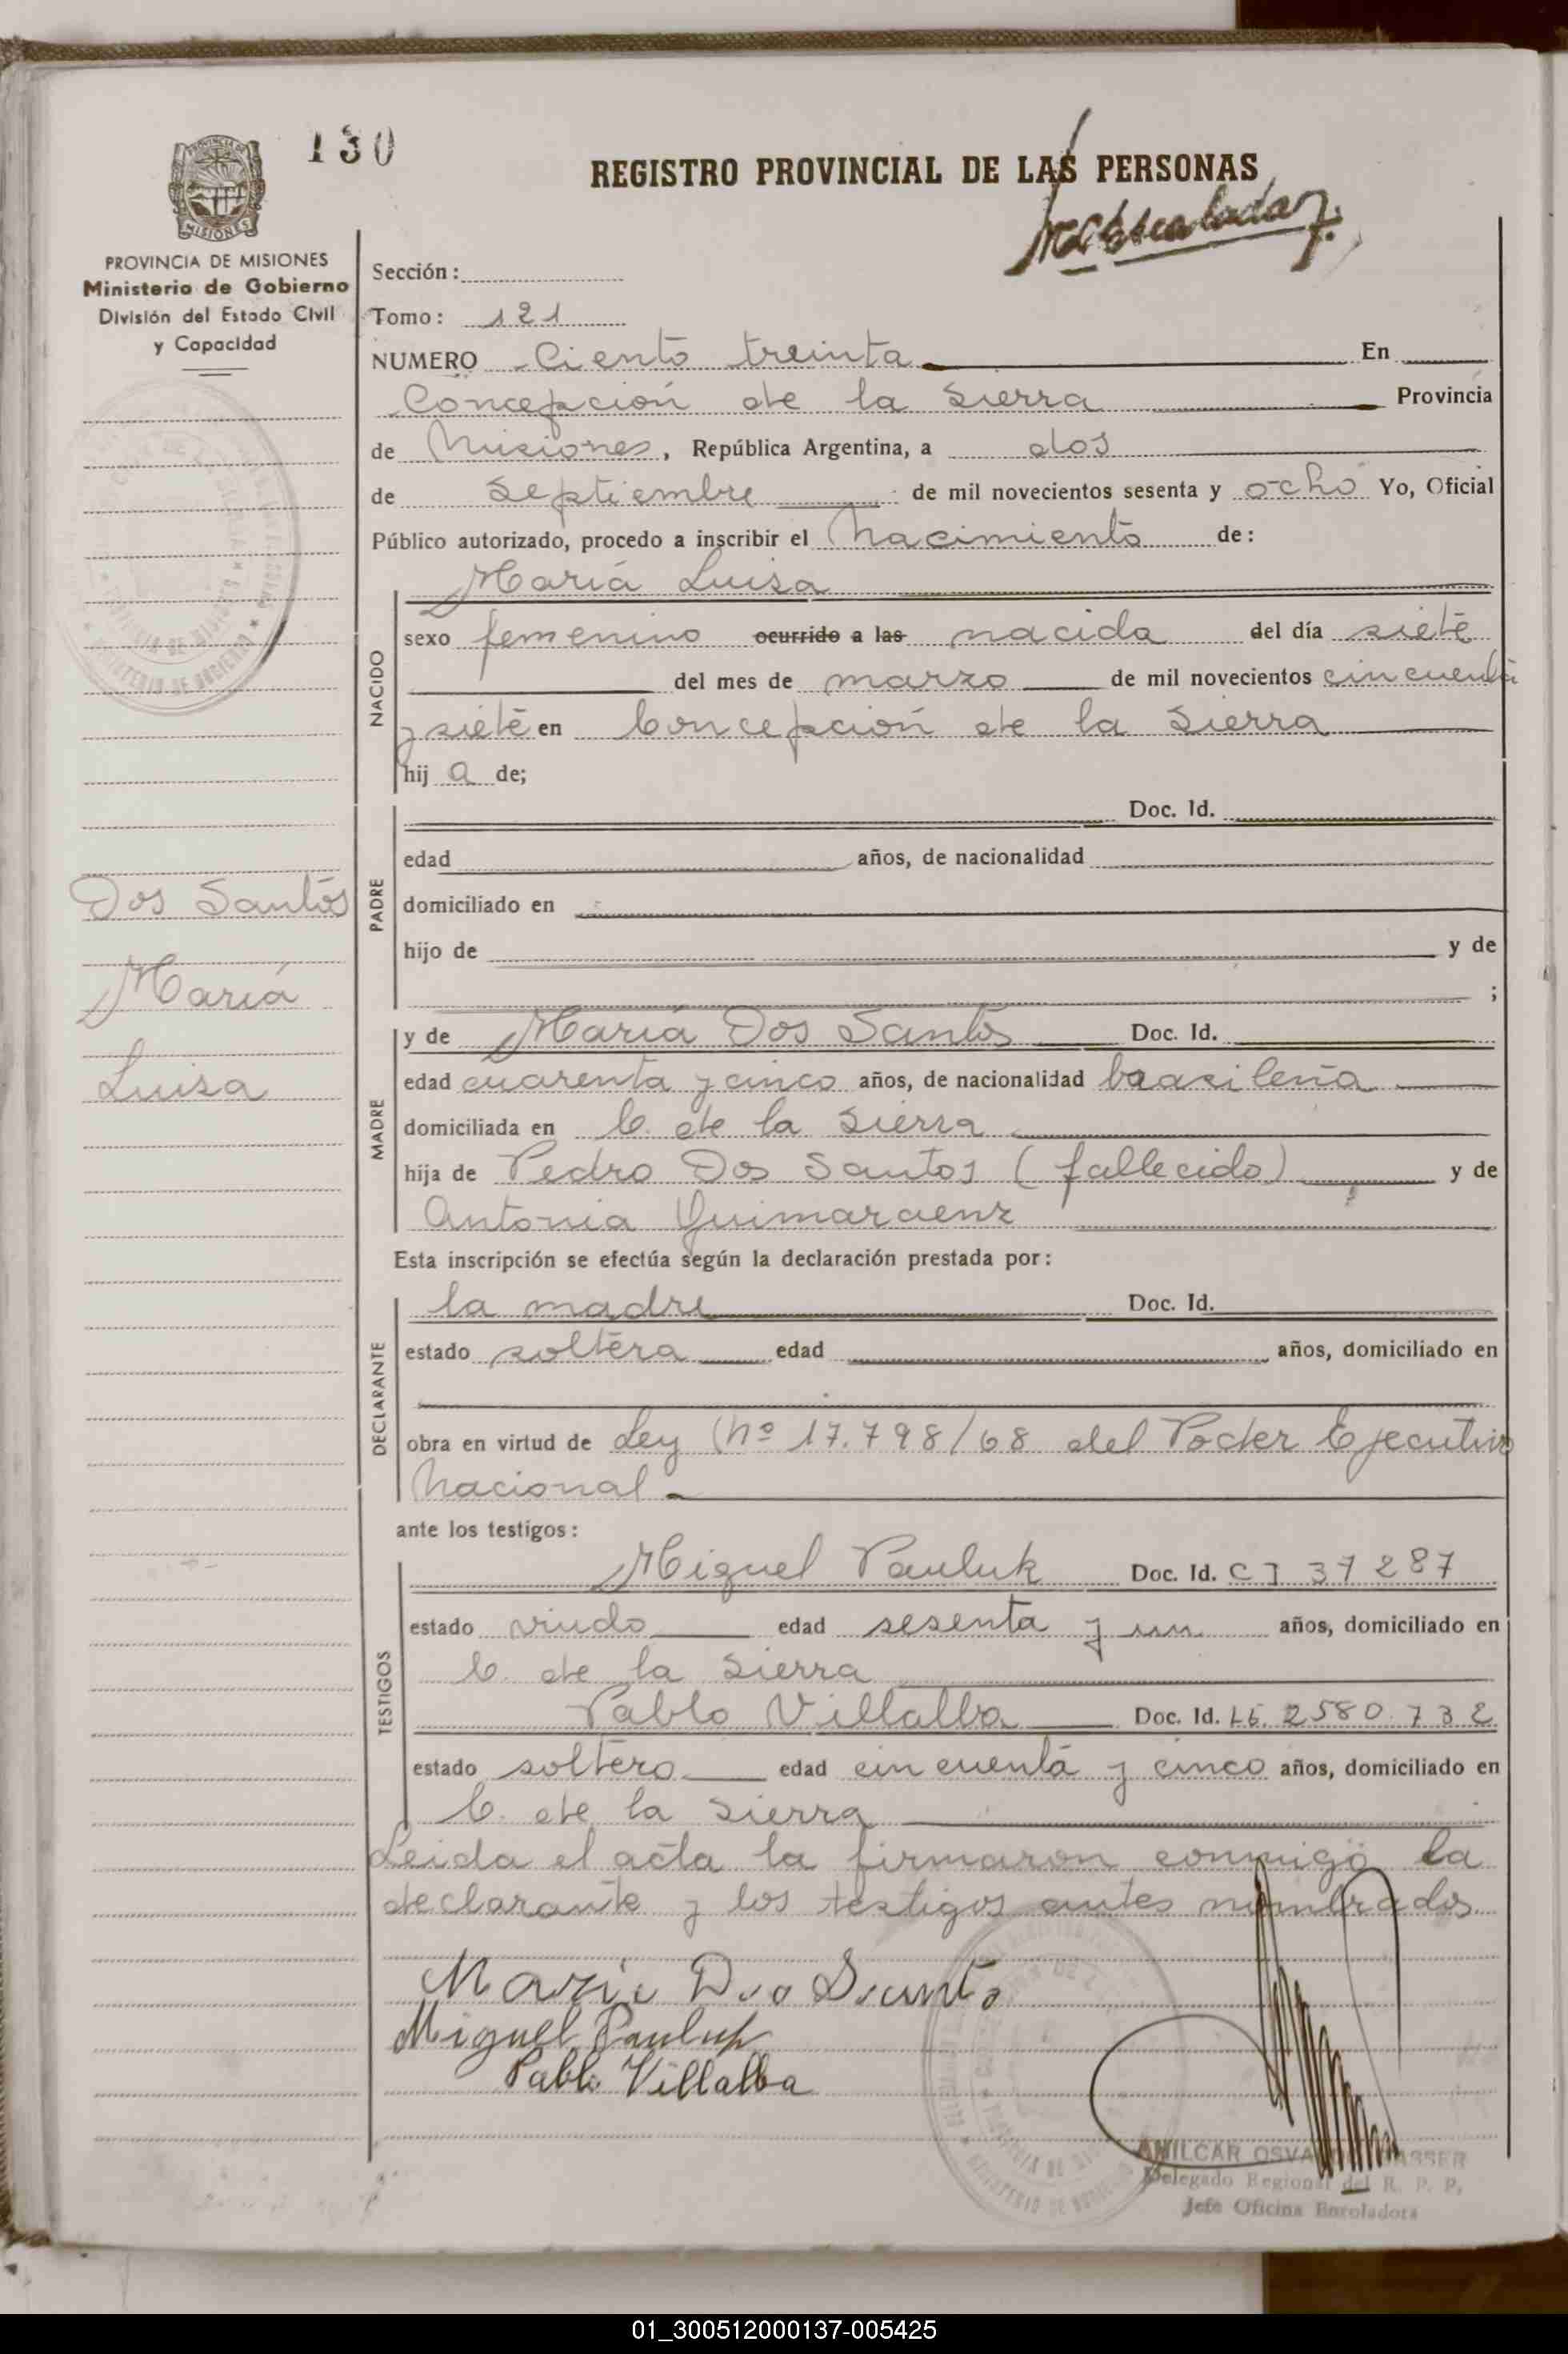 130
REGISTRO PROVINCIAL DE LAS PERSONAS
PROVINCIA DE MISIONES
Ministerio de Gobierno
División del Estado Civil
y Capacidad
Sección:
Tomo: 121
NUMERO Ciento treinta En
Concepción de la Sierra Provincia
de Misiones, República Argentina, a dos
de Septiembre de mil novecientos sesenta y ocho Yo, Oficial
Público autorizado, procedo a inscribir el Nacimiento de:
María Luisa
NACIDO
sexo femenino ocurrido a las nacida del día siete
del mes de marzo de mil novecientos cincuenta
y siete en Concepción de la Sierra
hij a de;
PADRE
Doc. Id.
edad años, de nacionalidad
domiciliado en
hijo de y de
;
Dos Santos
María
Luisa
MADRE
y de María Dos Santos Doc. Id.
edad cuarenta y cinco años, de nacionalidad brasileña
domiciliada en C. de la Sierra
hija de Pedro Dos Santos (fallecido) y de
Antonia Guimaraenz
Esta inscripción se efectúa según la declaración prestada por:
DECLARANTE
la madre Doc. Id.
estado soltera edad años, domiciliado en
obra en virtud de Ley Nº 17.798/68 del Poder Ejecutivo
Nacional
ante los testigos:
TESTIGOS
Miguel Pauluk Doc. Id. CI 37287
estado viudo edad sesenta y un años, domiciliado en
C. de la Sierra
Pablo Villalba Doc. Id. LE. 2580.732
estado soltero edad cincuenta y cinco años, domiciliado en
C. de la Sierra
Leida el acta la firmaron conmigo la
declarante y los testigos antes nombrados
Maria Dos Santo
Miguel Pauluk
Pablo Villalba
AMILCAR
Delegado Regional del R. P. P.
Jefe Oficina Enroladora
01_300512000137-005425